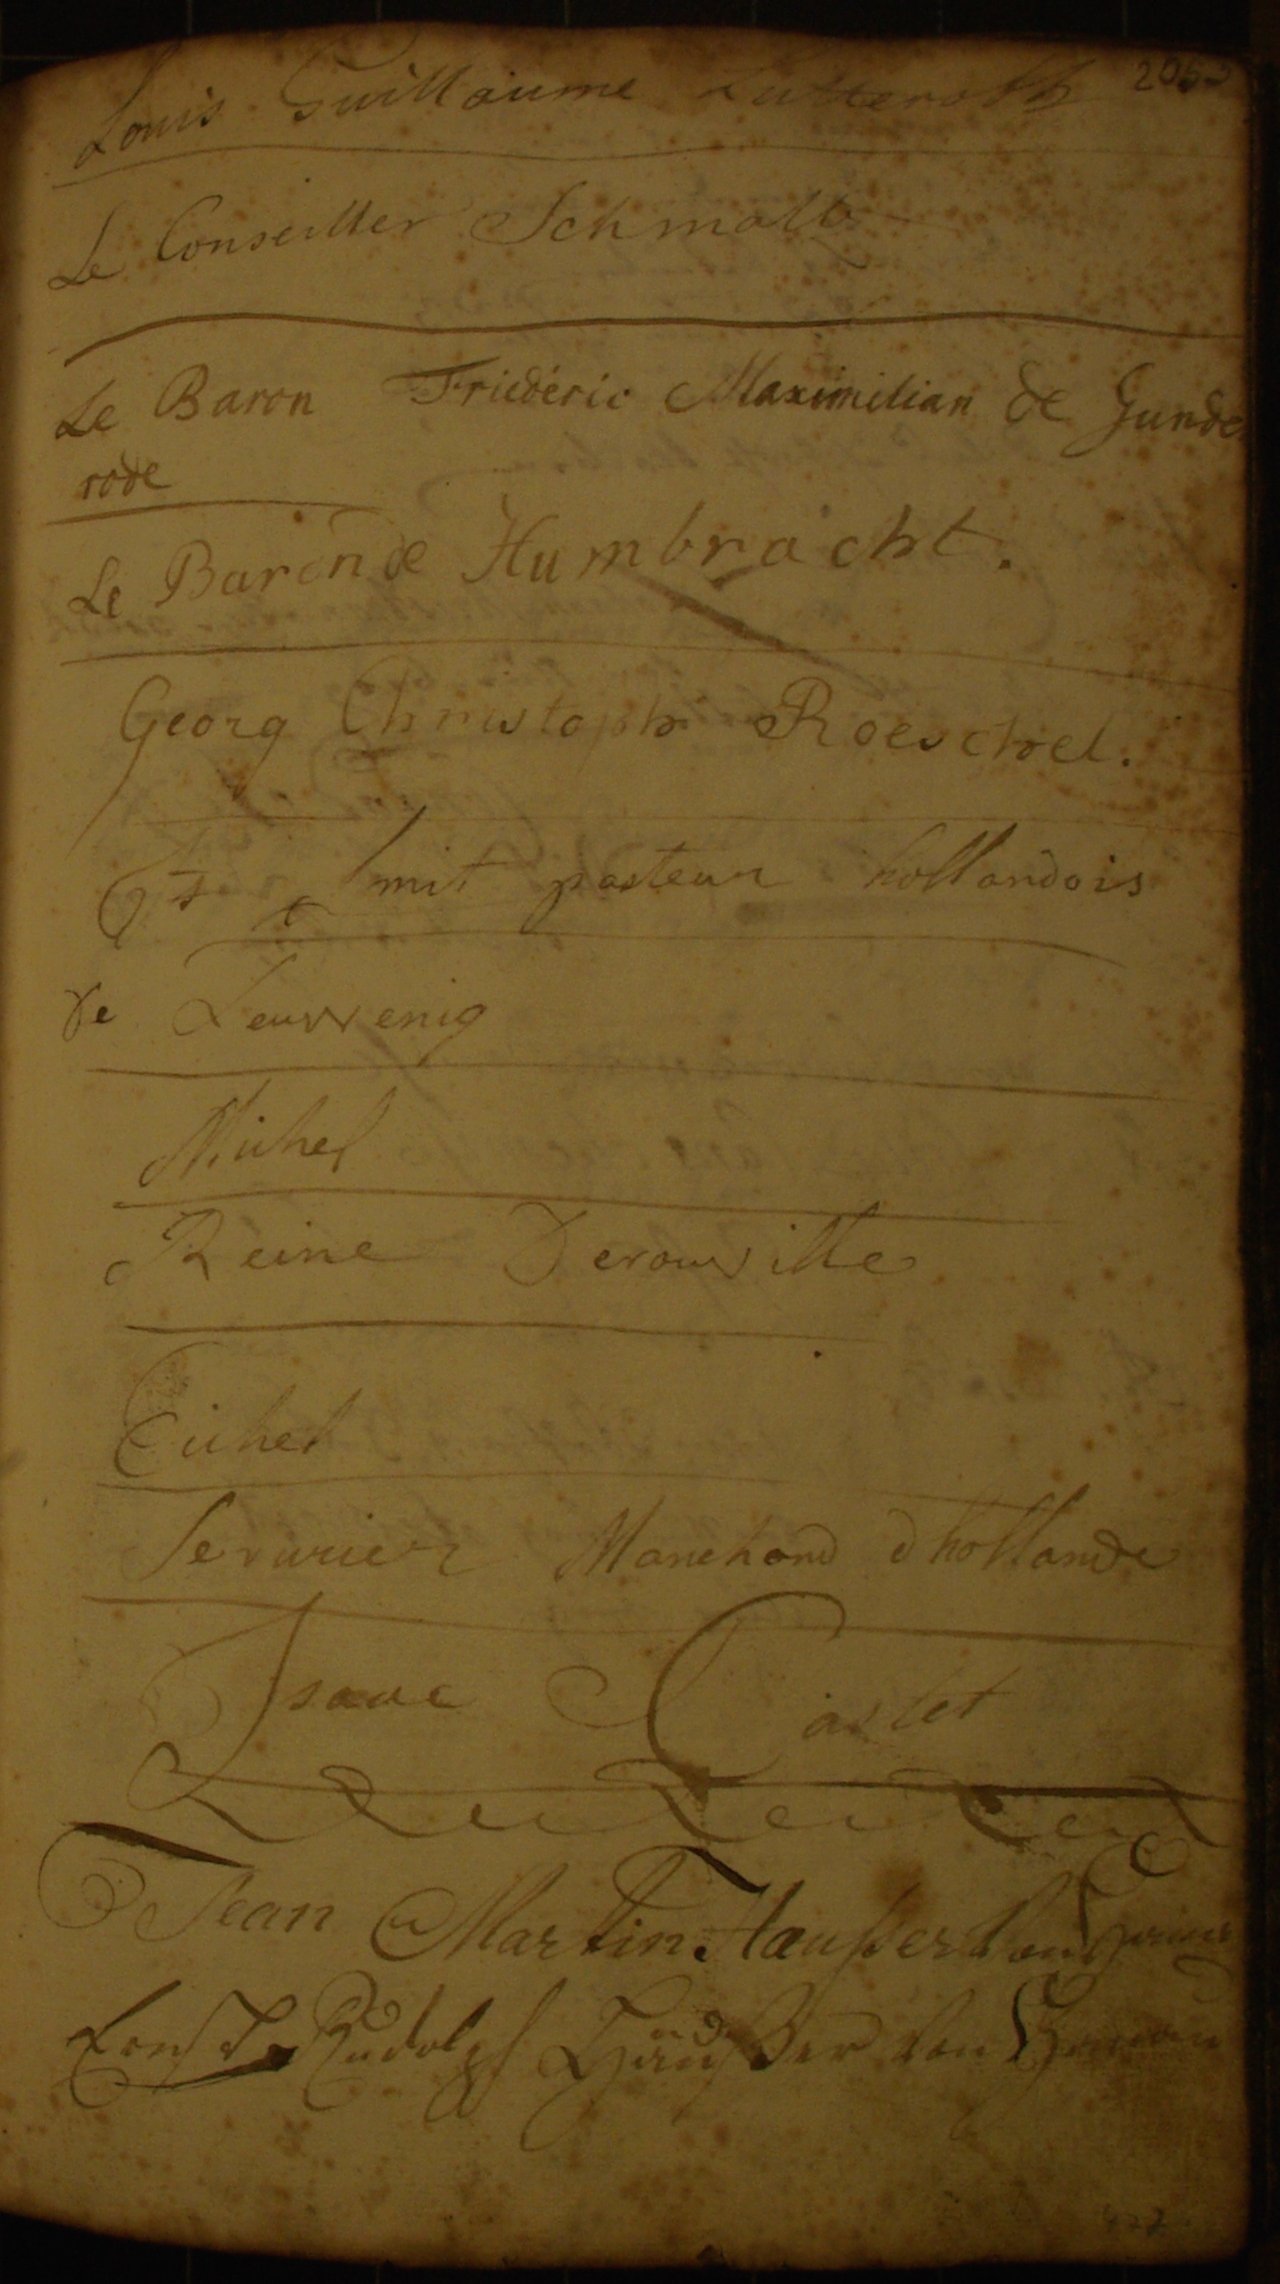 Louis Guillaume Lutteroth
Le Conseiller Schmaltz
Le Baron Friederic Maximilian de Gunde
rode
Le Baron de Humbracht.
Georg Christoph Roeschel.
Smit pasteur hollandois
de Leuwenig
Michel
Reine Derouville
Eichel
Serurier Marchand d hollande
Isaac Castet
Jean Martin Haußer von Hanau
Ernst Rudolph Häußer von Hanau